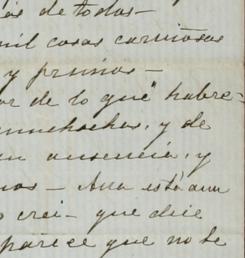 de todas—
mil cosas cariñosas
y primos—
or de lo que habre-
muchachos, y de
ausencia, y
nos— Ana está aun
crei— que dice
parece que no se